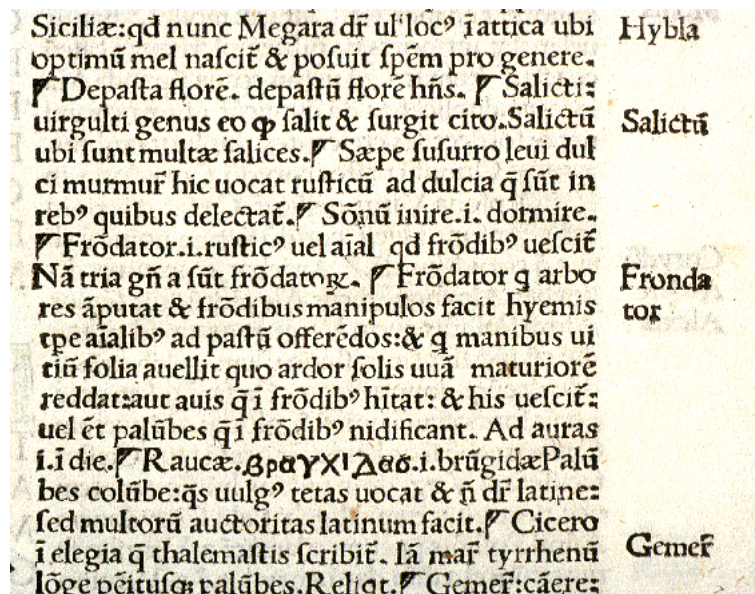 Siciliæ:qđ nunc Megara dr̃ ul' locꝰ ĩ attica ubi
Hybla
optimũ mel naſcit̃ & poſuit ſpẽm pro genere.
¶ Depaſta florẽ. depaſtũ florẽ hñs. ¶ Salicti:
uirgulti genus eo ꝙ ſalit & ſurgit cito.Salictũ
Salictũ
ubi ſunt multæ ſalices.¶ Sæpe ſuſurro leui dul
ci murmur̃ hic uocat ruſticũ ad dulcia q̃ ſũt in
rebꝰ quibus delectat̃.¶ Sõnũ inire.i. dormire.
¶ Frõdator.i.ruſticꝰ uel aĩal qđ frõdibꝰ ueſcit̃
Nã tria gñ a ſũt frõdatoꝝ. ¶ Frõdator q arbo
Fronda
res ãputat & frõdibus manipulos facit hyemis
tor
tpe aĩalibꝰ ad paſtũ offerẽdos:& q manibus ui
tiũ folia auellit quo ardor ſolis uuã maturiorẽ
reddat:aut auis q̃ ĩ frõdibꝰ hĩtat: & his ueſcit̃:
uel ẽt palũbes q̃ ĩ frõdibꝰ nidificant. Ad auras
i.ĩ die.¶ Raucæ.βραγχιλασ.i.brũgidæ Palũ
bes colũbe:q̃s uulgꝰ tetas uocat & ñ dr̃ latine:
ſed multorũ auctoritas latinum facit.¶ Cicero
ĩ elegia q̃ thalemaſtis ſcribit̃. Iã mar̃ tyrrhenũ
Gemer̃
lõge pẽituſqꝫ palũbes.Reliqt.¶ Gemer̃:cãere: